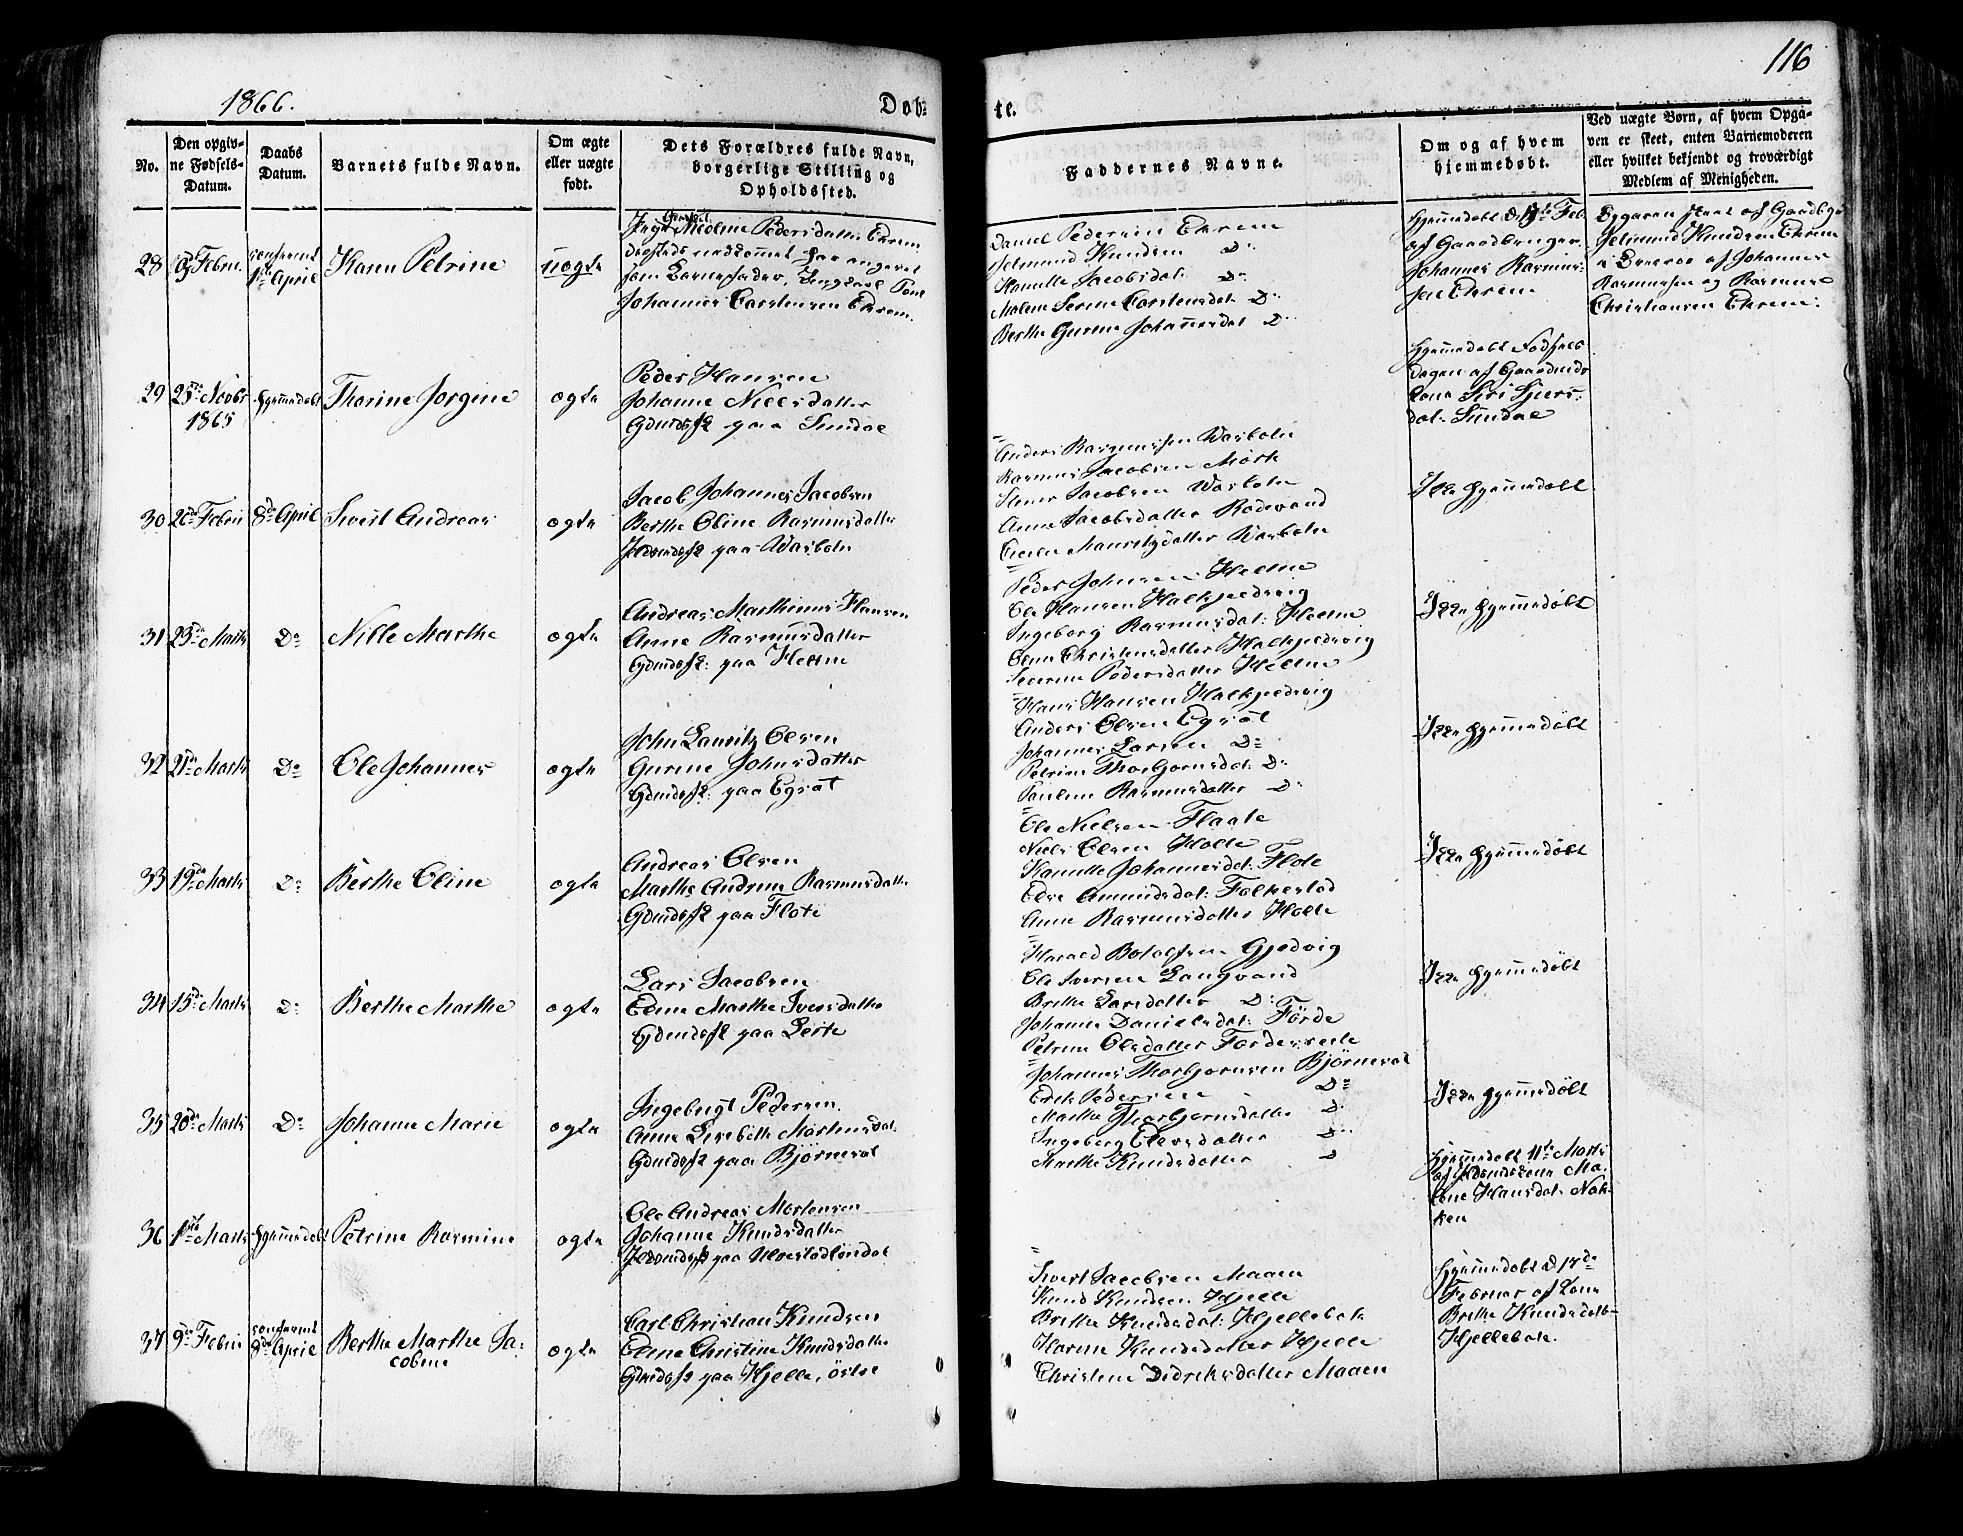 1866.
Døb-
te.
116
No.
Den opgiv-
ne Fødsels-
Datum.
Daabs
Datum.
Barnets fulde Navn.
Om ægte
eller uægte
født.
Dets Forældres fulde Navn,
borgerlige Stilling og
Opholdssted.
Faddernes Navne.
Om og af hvem
hjemmedøbt.
Ved uægte Børn, af hvem Opga-
ven er skeet, enten Barnemoderen
eller hvilket bekjendt og troværdigt
Medlem af Menigheden.
28
Febru.
1ste April
Karen Petrine
uægte
Nicoline Pedersdatter Ekrem
som Barnefader, Ungkarl
Johannes Carstensen Ekrem.
Daniel Pedersen Ekrem
Jetmund Knudsen Do
Kanutte Jacobsdat. Do
Malene Serine Carstensdat. Do
Berthe Gurine Johannesdat. Do
Hjemmedøbt d. Feb.
af Gaardbruger
Johannes Rasmus-
sen Ekrem
Jetmund Knudsen Ekrem
af Johannes
Rasmussen og Rasmus
Christiansen Ekrem.
29
25de Novbr
1865
Hjemmedøbt
Thorine Jorgine
ægte
Peder Hansen
Johanne Nilsdatter
Gdmdsfk paa Sundal
Hjemmedøbt Fødsels
dagen af Gaardmds
kone Siri Sjurs-
dat. Sundal
30
20de Febru
8de April
Sivert Andreas
ægte
Jacob Johannes Jacobsen
Berthe Oline Rasmusdatter
paa Warholm
Anders Rasmussen Warholm
Rasmus Jacobsen Mørk
Jacobsen Warholm
Anne Jacobsdatter Rødevand
Mauritzdatter Warholm
Ikke hjemmedøbt
31
23de Marts
Do
Nille Marthe
ægte
Andreas Mathinus Hansen
Anne Rasmusdatter
Gdmdsfk: paa Helsem
Peder Johnsen
Ole Hansen Halkjelsvig
Ingeborg Rasmusdat.
Christensdatter Halkjelsvig
Severine Pedersdatter
Ikke hjemmedøbt
32
21de Marts
Do
Ole Johannes
ægte
John Lauritz Olsen
Gurine Johnsdatter
Gdmdsfk: paa Egsæt
Hans Hansen Halkjelsvig
Anders Olsen Egsæt
Johannes Larsen Do
Petrine Thorbjørnsdat. Do
Pauline Rasmusdatter Do
Ikke hjemmedøbt
33
19de Marts
Do
Berthe Oline
ægte
Andreas Olsen
Marthe Andrine Rasmusdatter
Gdmdsfk paa Flote
Ole Nielsen Flaate
Niels Olsen Holte
Kanutte Johannesdat. Flote
Else Amundsdat. Folkestad
Anne Rasmusdatter Holte
Ikke hjemmedøbt
34
15de Marts
Do
Berthe Marthe
ægte
Lars Jacobsen
Eline Marthe Iversdatter
Gdmdsfk paa Leite
Harald Botolfsen Gjedvig
Ole Iversen Langvand
Brithe Larsdatter Do
Johanne Danielsdat. Førde
Petrine Olsdatter
Ikke hjemmedøbt
35
20de Marts
Do
Johanne Marie
ægte
Ingebrigt Pedersen
Anne Lisebette Mortensdat.
Gdmdsfk paa Bjørneset
Johannes Thorbjørnsen Bjørneset
Pedersen Do
Marthe Thorbjørnsdatter Do
Ingeborg Olsdatter Do
Marthe Knudsdatter Do
Ikke hjemmedøbt
36
1ste Marts
Hjemmedøbt
Petrine Rasmine
ægte
Ole Andreas Mortensen
Johanne Knudsdatter
paa
Hjemmedøbt 11te Marts
af Ma-
lene Hansdat. Nak-
ken
37
9de Febru
8de April
Berthe Marthe Ja-
cobine
ægte
Carl Christian Knudsen
Eline Christine Knudsdatter
Gdmdsfk paa Hjelle, østre
Sivert Jacobsen Maaen
Knud Knudsen Hjelle
Brithe Knudsdat. Hjellebak
Knudsdatter Hjelle
Christine Didriksdatter Maaen
Hjemmedøbt d. 17de
Februar af Kone
Brithe Knudsdatter
Hjellebak.